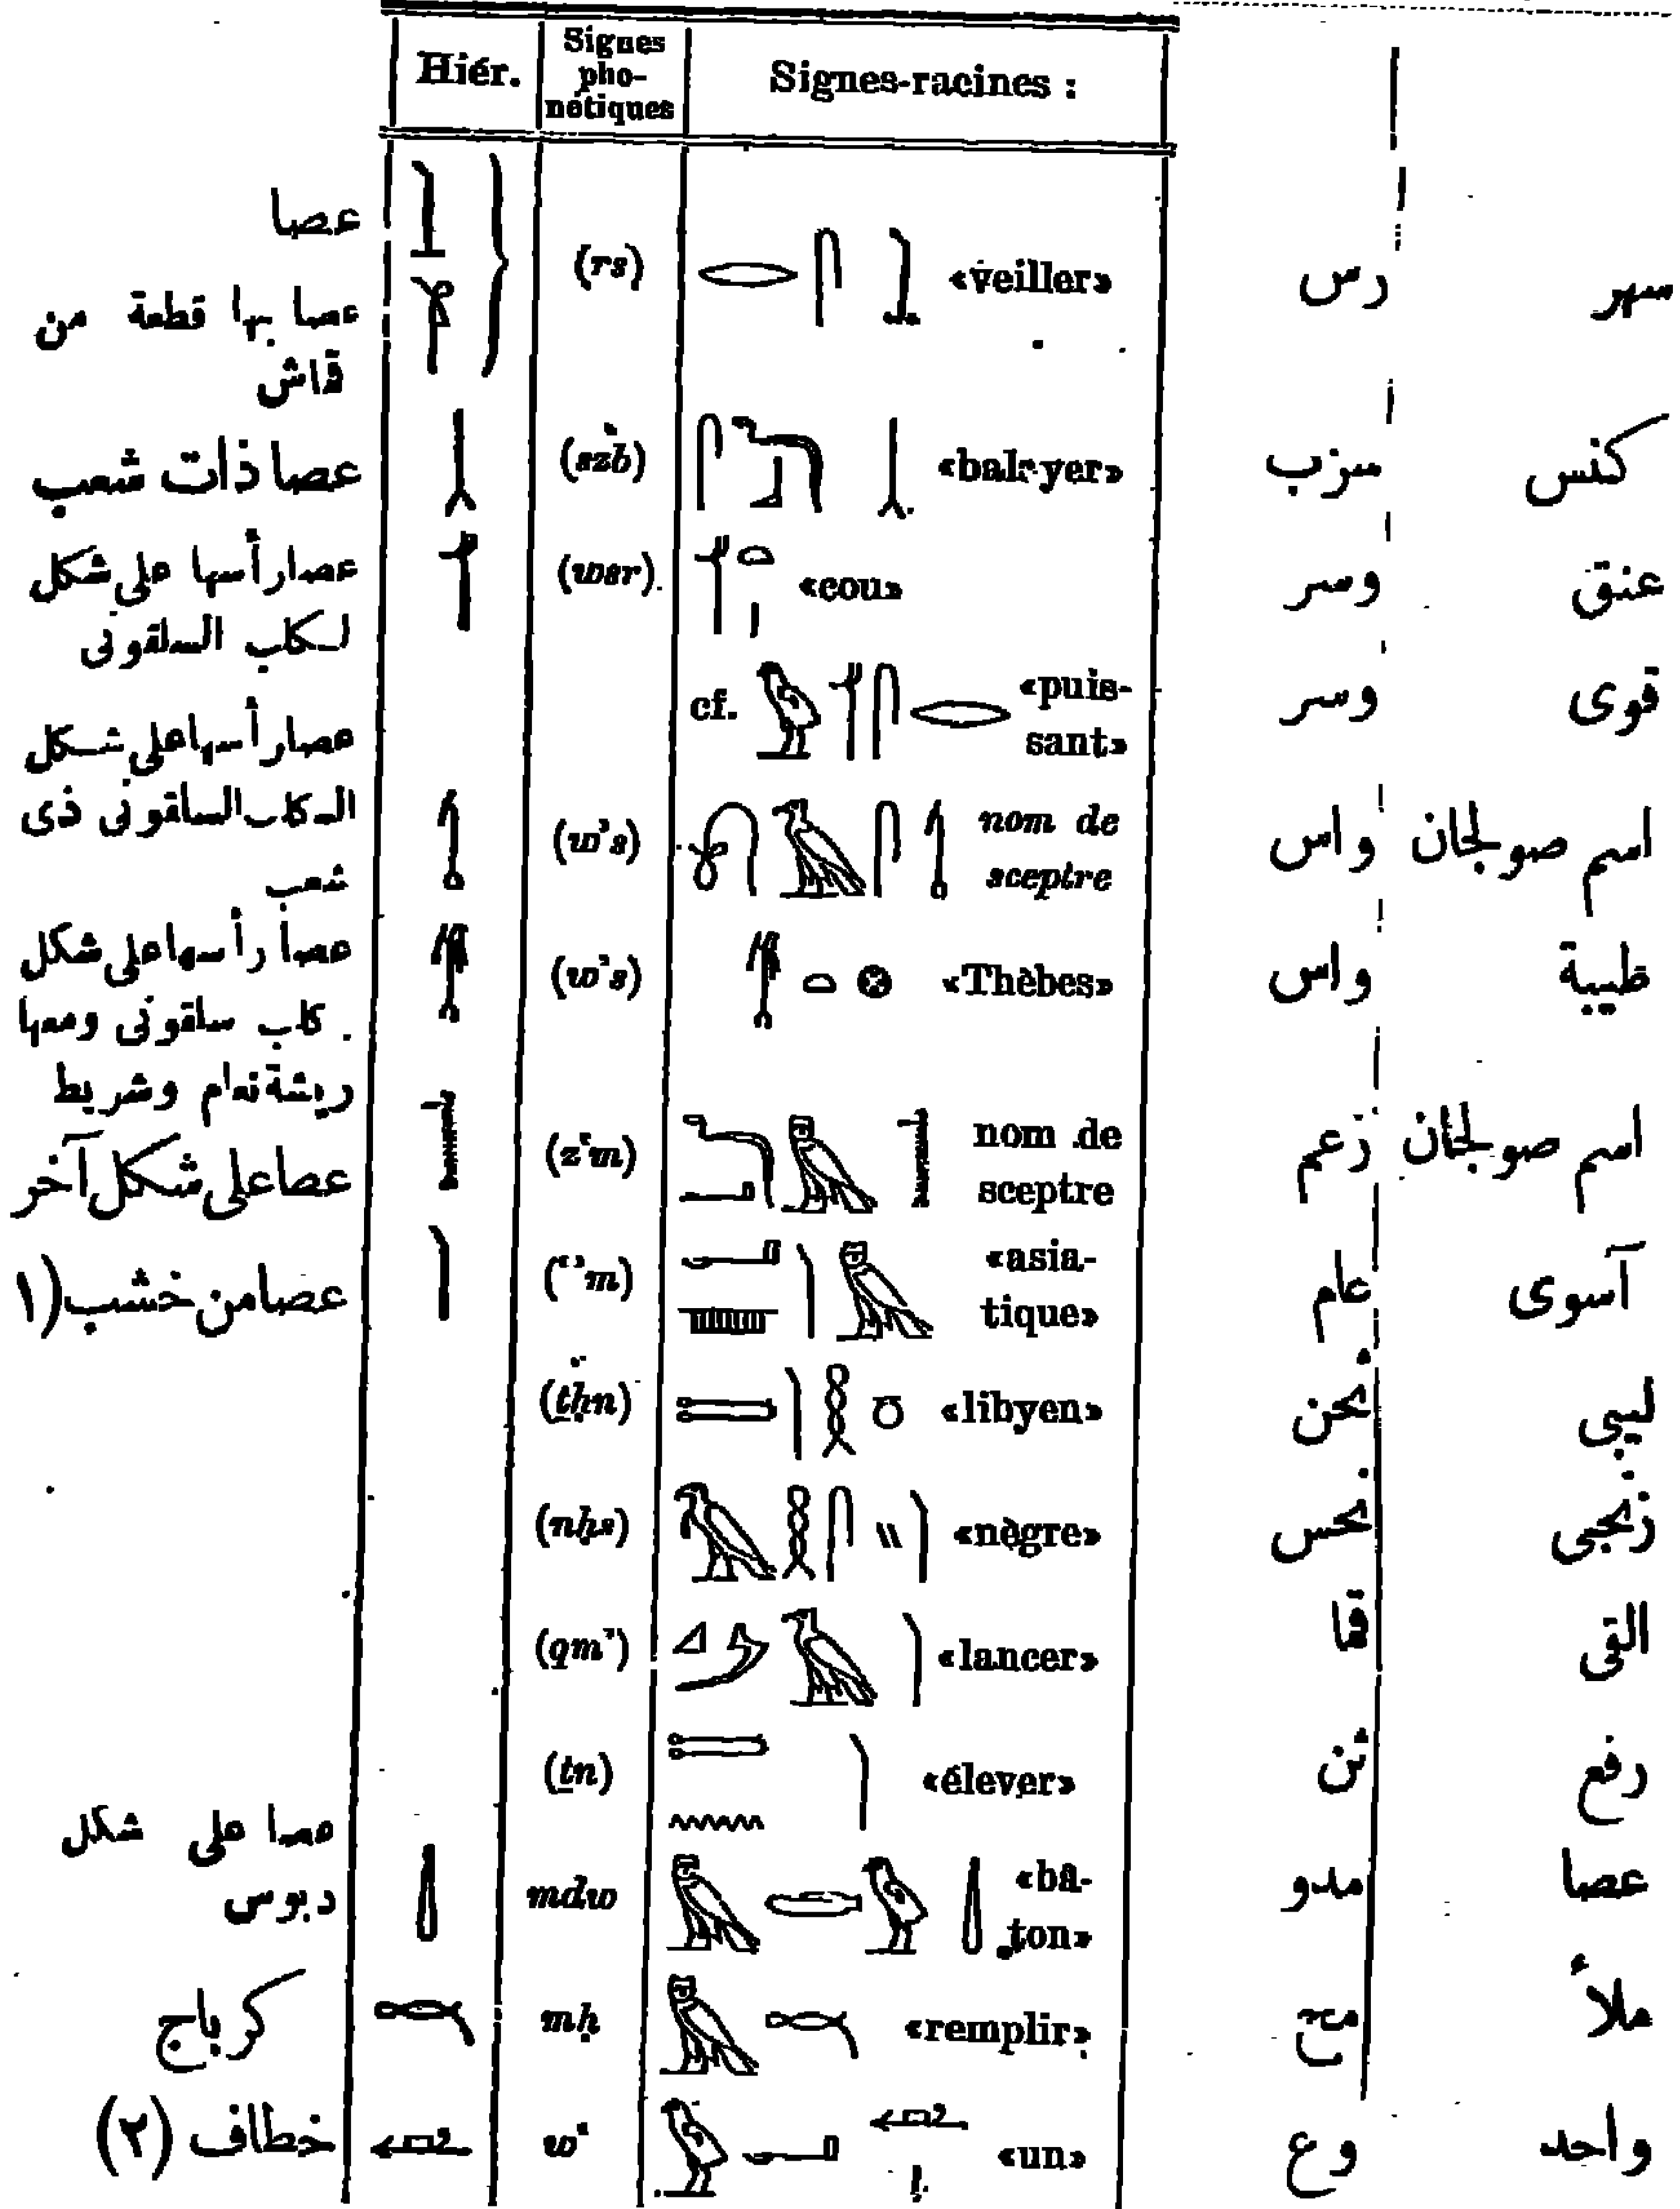 Hiér. Signes phonétiques Signes-racines :
عصا
عصا بها قطعة من قماش (rs) «veiller» رس سهر
عصا ذات شعب (szb) «balayer» سزب كنس
عصا رأسها على شكل الكلب السلقونى (wsr) «cou» وسر عنق
cf. «puissant» وسر قوى
عصا رأسها على شكل الكلب السلقونى ذى شعب (w's) nom de sceptre واس اسم صولجان
عصا رأسها على شكل كلب سلقونى ومعها ريشة نعام وشريط (w's) «Thèbes» واس طيبة
عصا على شكل آخر (z‘m) nom de sceptre زعم اسم صولجان
عصا من خشب (١ (‘’m) «asiatique» عام آسوى
(ṯḥn) «libyen» ثحن ليبى
(nḥs) «nègre» نحس زنجى
(qm’) «lancer» قما القى
(ṯn) «élever» ثن رفع
عصا على شكل دبوس mdw «bâton» مدو عصا
كرباج mḥ «remplir» مح ملأ
خطاف (٢) w‘ «un» وع واحد